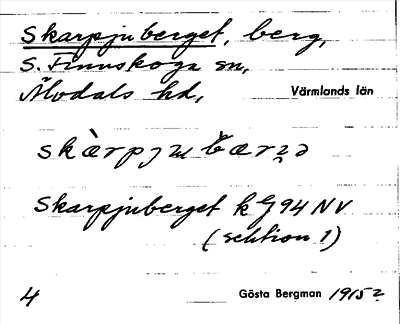 Skarpjuberget, berg,
S. Finnskoga sn,
Älvdals hd, Värmlands län
Skarpjuberget k G 94 NV
(sektion 1)
4 Gösta Bergman 1915